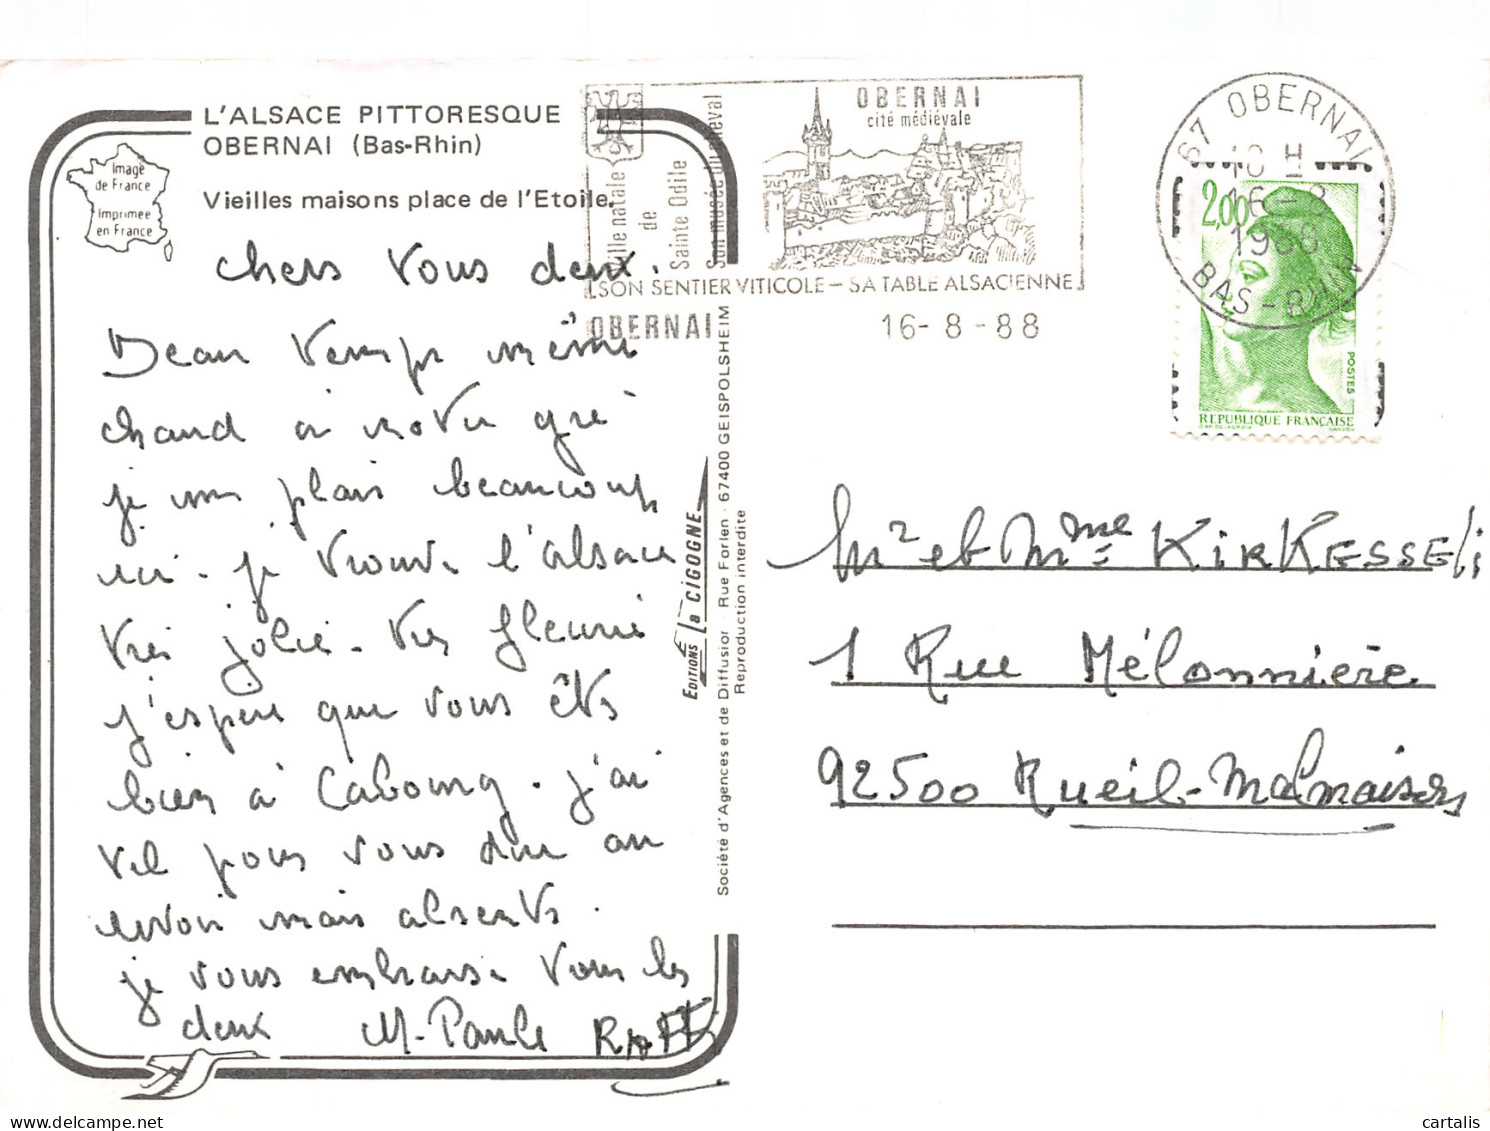 L'ALSACE PITTORESQUE
OBERNAI (Bas-Rhin)
Vieilles maisons place de l'Etoile.
Image
de France
Imprimée
en France
chers vous deux.
Beau temps même
chaud à notre gré
je me plais beaucoup
ici. je trouve l'alsace
très jolie. très fleurie
j'espère que vous êtes
bien à Cabourg. j'ai
tél pour vous dire au
revoir mais absents.
je vous embrasse tous les
deux M-Paule RAFFI
EDITIONS la CIGOGNE
Société d'Agences et de Diffusion - Rue Forlen - 67400 GEISPOLSHEIM
Reproduction interdite
Ville natale
de
Sainte Odile
Son musée du cheval
OBERNAI
cité médiévale
SON SENTIER VITICOLE - SA TABLE ALSACIENNE
OBERNAI
16-8-88
67 OBERNAI
16-8
1988
BAS-RHIN
2,00
POSTES
REPUBLIQUE FRANÇAISE
Mr et Mme KIRKESSELi
1 Rue Mélonnière
92500 Rueil-Malmaison
cartalis